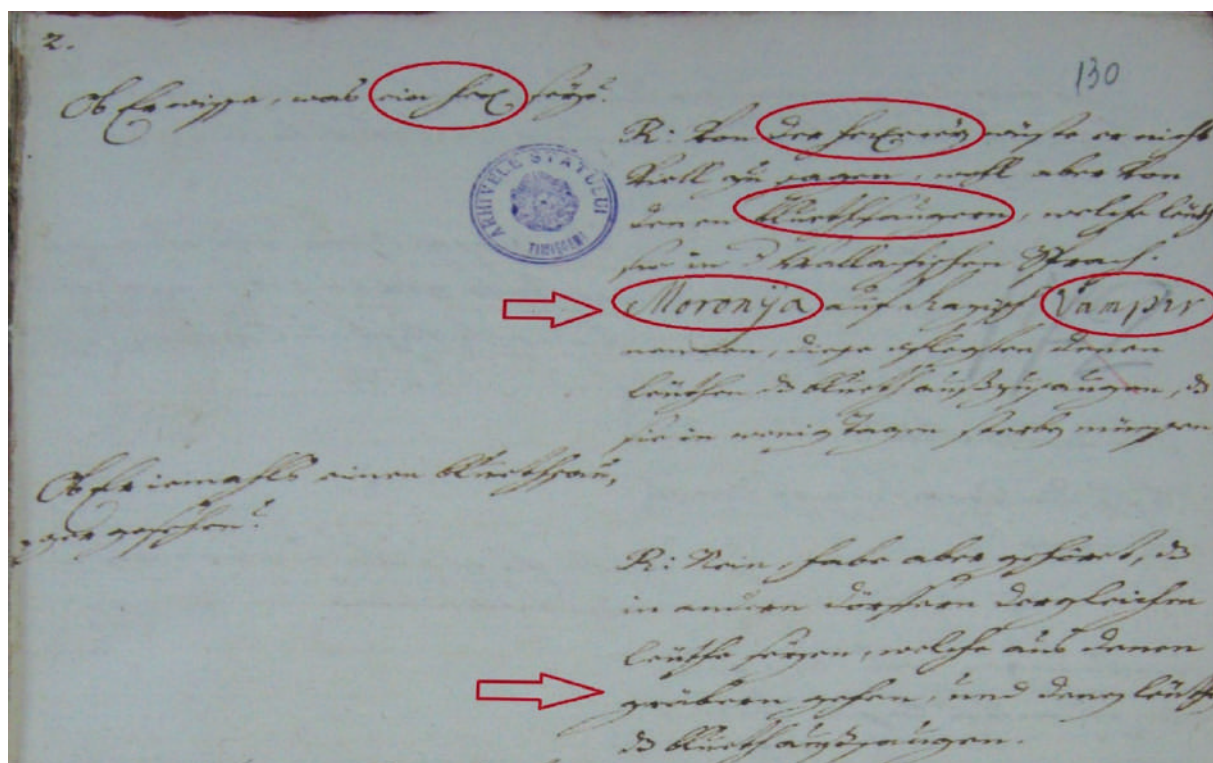 2.
130
Ob Er wisse, was ein hex seÿe?
R: Von der hexereÿ wüste er nicht
Viell zu sagen, wohl aber von
denen bluethsaugern, welche leüth
sie in d Wallachischen Sprach
Moronija auf Razisch Vampir
nennen, diese pflegten denen
leüthen dz blueth auszusaugen, dz
sie in wenig tagen sterben müssen
ARHIVELE STATULUI
TIMIȘOARA
Ob Er iemahls einen bluethsau,
ger gesehen?
R: Nein, habe aber gehöret, dz
in andern dörffern dergleichen
leüthe seÿen, welche aus denen
gräbern gehen, und denen leüth
dz blueth aussaugen.